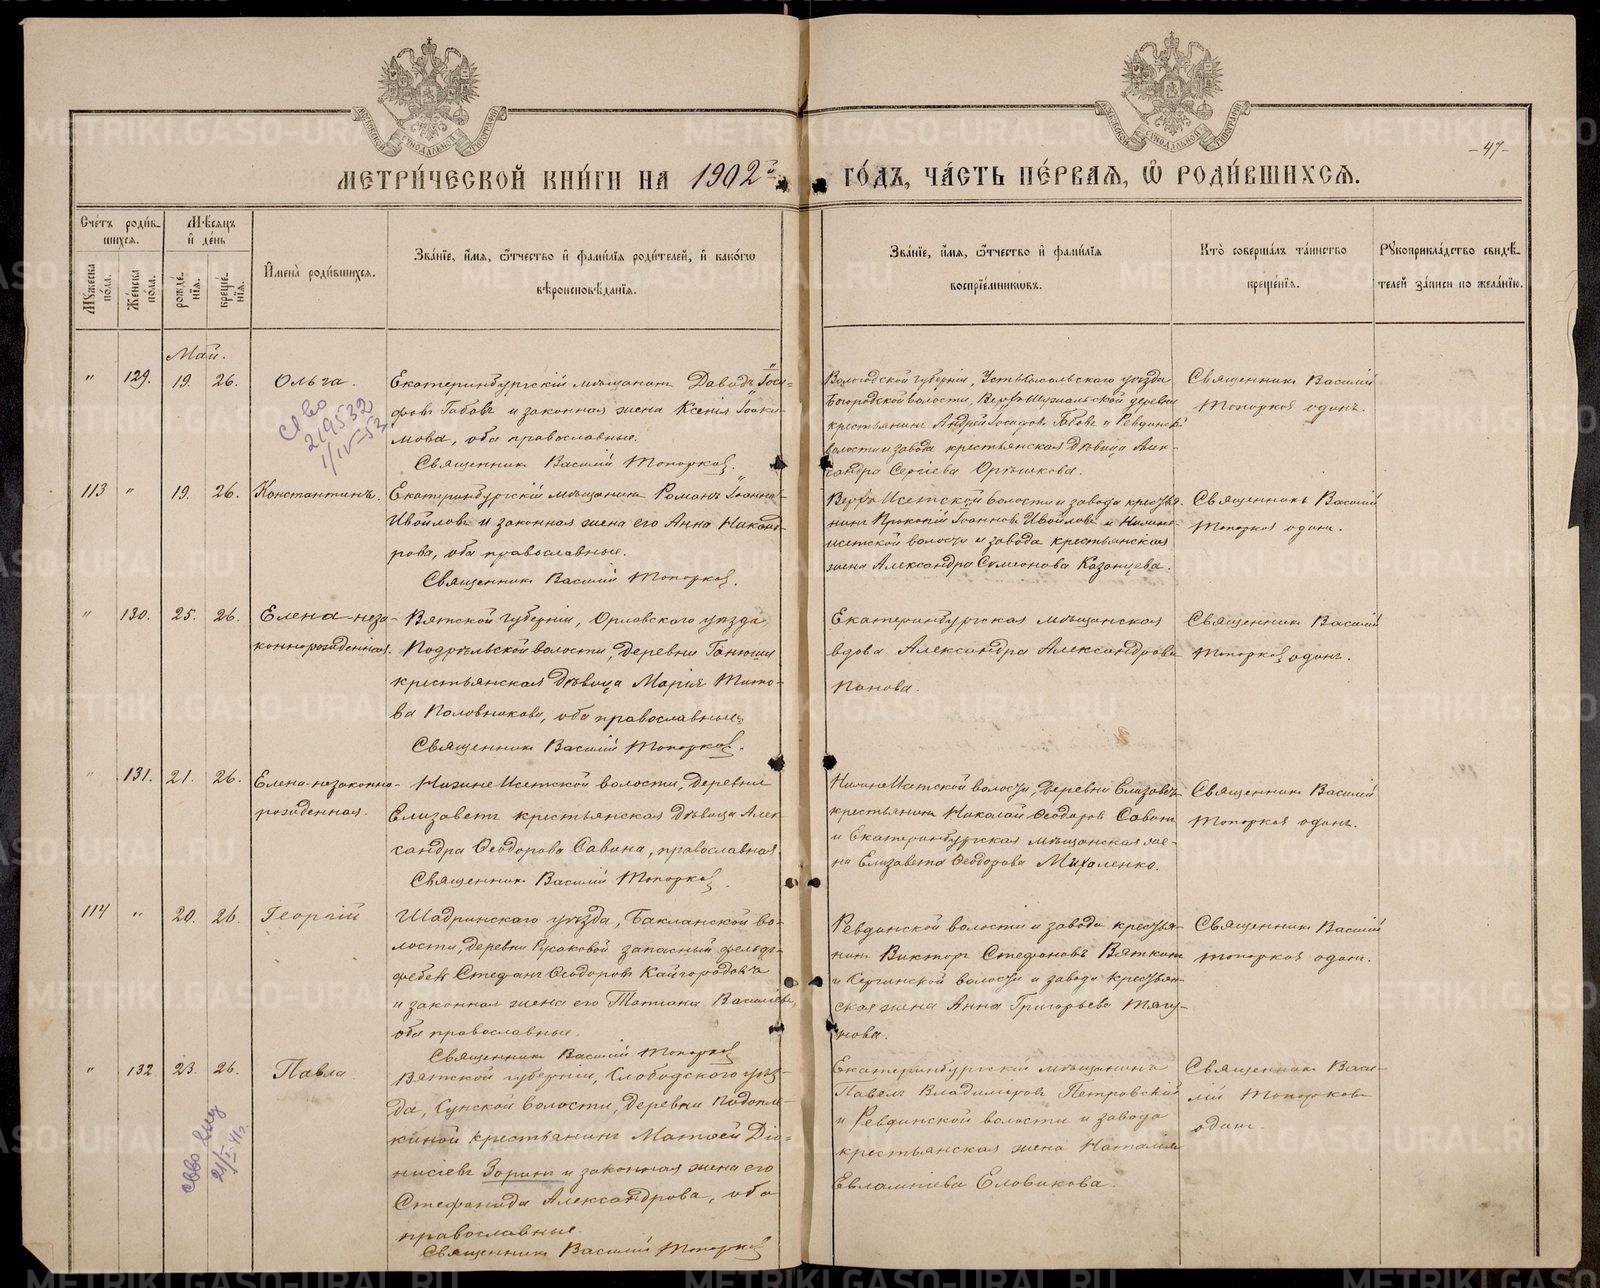 -47-
МЕТРИ́ЧЕСКОЙ КНИ́ГИ НА 1902й ГО́ДЪ, ЧА́СТЬ ПЕ́РВАЯ, Ѽ РОДИ́ВШИХСѦ.
Счетъ родив-
шихся.
Мѣсяцъ
и день
Мужеска
пола.
Женска
пола.
рожде-
нія.
креще-
нія.
Имена родившихся.
Званіе, имя, ѿчество и фамилія родителей, и какогѡ
вѣроисповѣданія.
Званіе, имя, ѿчество и фамилія
воспріемникѡвъ.
Кто совершалъ таинство
крещенія.
Рукоприкладство свидѣ-
телей записи по желанію.
Май.
" 129. 19. 26. Ольга.
Екатеринбургскій мѣщанинъ Давидъ Іоси-
фовъ Габовъ и законная жена Ксенія Іоаки-
мова, оба православные.
Священникъ Василій Топорковъ.
Вологодской губерніи, Устьсысольскаго уѣзда
Богородской волости, деревни
крестьянинъ Андрей Іосифовъ Габовъ и Ревдинской
волости и завода крестьянская дѣвица Алек-
сандра Сергіева Орѣшкова.
Священникъ Василій
Топорковъ одинъ.
св во
219532
1/IV-53
113 " 19. 26. Константинъ.
Екатеринбургскій мѣщанинъ Романъ Іоанновъ
Ивойловъ и законная жена его Анна Никанд-
рова, оба православные.
Священникъ Василій Топорковъ.
Верхъ Исетской волости и завода крестья-
нинъ Прокопій Іоанновъ Ивойловъ и Нижне-
исетской волости и завода крестьянская
жена Александра Симеонова Казанцева.
Священникъ Василій
Топорковъ одинъ.
" 130. 25. 26. Елена-неза-
коннорожденная.
Вятской губерніи, Орловскаго уѣзда
Подрѣльской волости, деревни
крестьянская дѣвица Марія Тито-
ва Половникова, оба православныя
Священникъ Василій Топорковъ.
Екатеринбургская мѣщанская
вдова Александра Александрова
Панова.
Священникъ Василій
Топорковъ одинъ.
" 131. 21. 26. Елена-незаконно-
рожденная.
Нижне Исетской волости, деревни
Елизаветъ крестьянская дѣвица Алек-
сандра Ѳеодорова Савина, православная.
Священникъ Василій Топорковъ.
Нижне Исетской волости, деревни Елизаветъ
крестьянинъ Николай Ѳеодоровъ Савинъ
и Екатеринбургская мѣщанская же-
на Елизавета Ѳеодорова Михаленко.
Священникъ Василій
Топорковъ одинъ.
114 " 20. 26. Георгій
Шадринскаго уѣзда, Бакланской во-
лости, деревни Русаковой запасный фельд-
фебель Стефанъ Ѳеодоровъ Кайгородовъ
и законная жена его Татіана Васильева,
оба православные.
Священникъ Василій Топорковъ
Ревдинской волости и завода крестья-
нинъ Викторъ Стефановъ Вяткинъ
и Сергинской волости и завода крестьян-
ская жена Анна Григорьева Тягу-
нова.
Священникъ Василій
Топорковъ одинъ.
" 132 23. 26. Павла
Вятской губерніи, Слободскаго уѣз-
да, Сунской волости, деревни
крестьянинъ Матѳей Діо-
нисіевъ Зоринъ и законная жена его
Стефанида Александрова, оба
православные.
Священникъ Василій Топорковъ
Екатеринбургскій мѣщанинъ
Павелъ Владиміровъ Петровскій
и Ревдинской волости и завода
крестьянская жена Наталія
Евлампіева Еловикова.
Священникъ Васи-
лій Топорковъ
одинъ.
METRIKI.GASO-URAL.RU